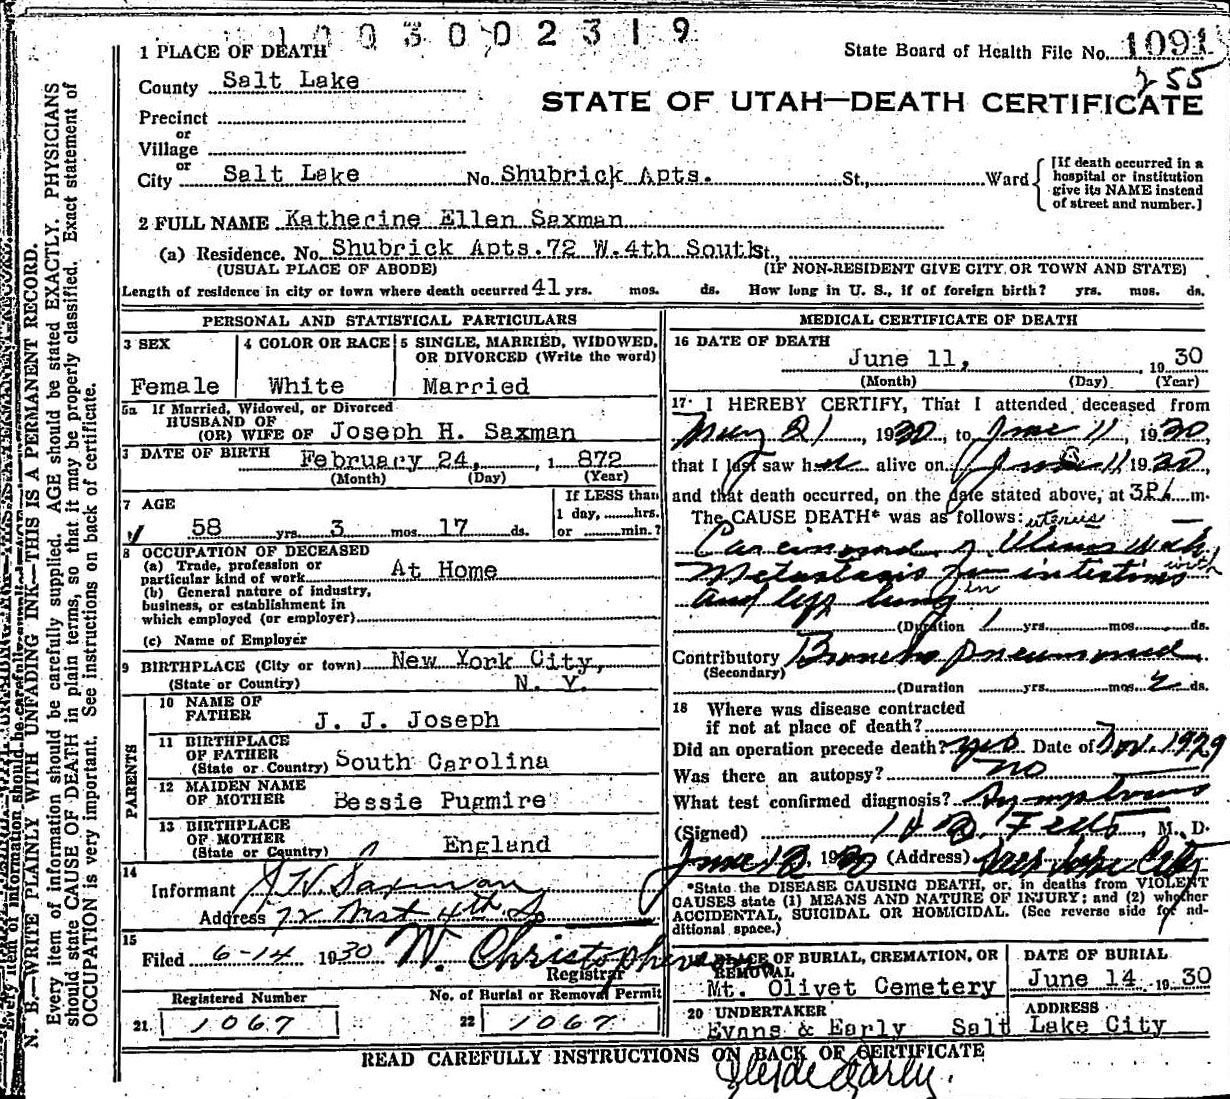 1003002319
1 PLACE OF DEATH
State Board of Health File No. 1091
255
County Salt Lake
STATE OF UTAH—DEATH CERTIFICATE
Precinct
or
Village
or
City Salt Lake No. Shubrick Apts. St., Ward
[If death occurred in a
hospital or institution
give its NAME instead
of street and number.]
2 FULL NAME Katherine Ellen Saxman
(a) Residence. No. Shubrick Apts. 72 W. 4th South St.,
(USUAL PLACE OF ABODE) (IF NON-RESIDENT GIVE CITY OR TOWN AND STATE)
Length of residence in city or town where death occurred 41 yrs. mos. ds. How long in U. S., if of foreign birth? yrs. mos. ds.
PERSONAL AND STATISTICAL PARTICULARS
3 SEX
Female
4 COLOR OR RACE
White
5 SINGLE, MARRIED, WIDOWED,
OR DIVORCED (Write the word)
Married
5a If Married, Widowed, or Divorced
HUSBAND OF
(OR) WIFE OF Joseph H. Saxman
DATE OF BIRTH February 24, 1872
(Month) (Day) (Year)
7 AGE
58 yrs. 3 mos. 17 ds.
If LESS than
1 day, hrs.
or min.?
8 OCCUPATION OF DECEASED
(a) Trade, profession or
particular kind of work At Home
(b) General nature of industry,
business, or establishment in
which employed (or employer)
(c) Name of Employer
9 BIRTHPLACE (City or town) New York City,
(State or Country) N. Y.
PARENTS
10 NAME OF
FATHER J. J. Joseph
11 BIRTHPLACE
OF FATHER
(State or Country) South Carolina
12 MAIDEN NAME
OF MOTHER Bessie Pugmire
13 BIRTHPLACE
OF MOTHER
(State or Country) England
14
Informant J. H. Saxman
Address 72 West 4th So
15
Filed 6-14 1930 W. Christophersen
Registrar
Registered Number
21. 1067
No. of Burial or Removal Permit
22 1067
MEDICAL CERTIFICATE OF DEATH
16 DATE OF DEATH
June 11, 1930
(Month) (Day) (Year)
17 I HEREBY CERTIFY, That I attended deceased from
May 21, 1930, to June 11, 1930,
that I last saw her alive on June 11 1930,
and that death occurred, on the date stated above, at 3P. m.
The CAUSE DEATH* was as follows: uterus
Carcinoma of Uterus with
Metastasis in intestines with
and left lung in
(Duration 1 yrs. mos. ds.
Contributory Broncho pneumonia
(Secondary)
(Duration yrs. mos. 2 ds.
18 Where was disease contracted
if not at place of death?
Did an operation precede death? yes Date of Nov. 1929
Was there an autopsy? no
What test confirmed diagnosis? Symptoms
(Signed) M. D.
June 12, 1930 (Address) Salt Lake City
*State the DISEASE CAUSING DEATH, or, in deaths from VIOLENT
CAUSES state (1) MEANS AND NATURE OF INJURY; and (2) whether
ACCIDENTAL, SUICIDAL OR HOMICIDAL. (See reverse side for ad-
ditional space.)
19 PLACE OF BURIAL, CREMATION, OR
REMOVAL
Mt. Olivet Cemetery
DATE OF BURIAL
June 14 1930
20 UNDERTAKER
Evans & Early
ADDRESS
Salt Lake City
READ CAREFULLY INSTRUCTIONS ON BACK OF CERTIFICATE
Clyde Early.
N. B.—WRITE PLAINLY WITH UNFADING INK—THIS IS A PERMANENT RECORD.
Every item of information should be carefully supplied. AGE should be stated EXACTLY. PHYSICIANS
should state CAUSE OF DEATH in plain terms, so that it may be properly classified. Exact statement of
OCCUPATION is very important. See instructions on back of certificate.